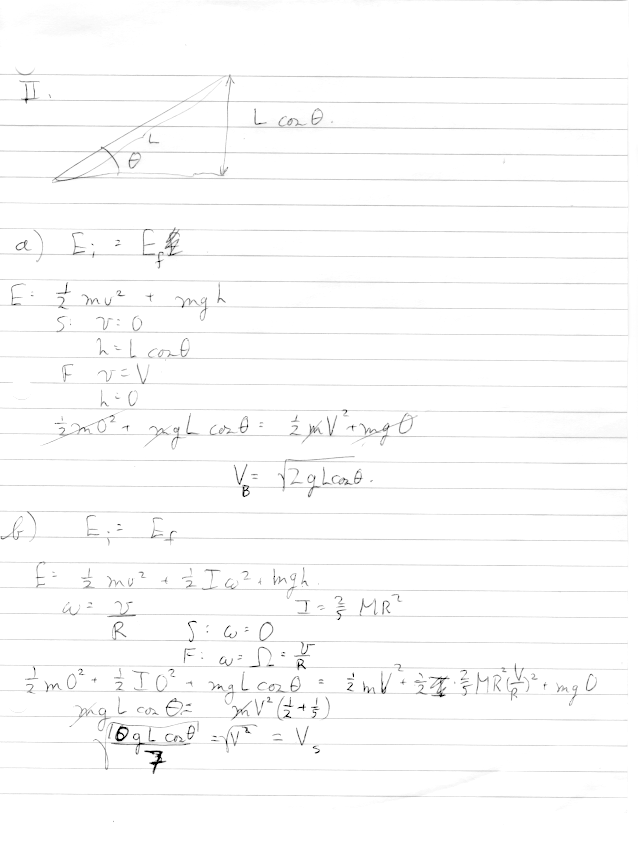 II.
L cos θ.
L
θ
a) E_i = E_f
E: 1/2 mv² + mgh
S: v: 0
h = L cos θ
F v = V
h: 0
1/2 m0² + mgL cos θ = 1/2 mV² + mg0
V_B = √(2gL cos θ).
b) E_i = E_f
E = 1/2 mv² + 1/2 Iω² + mgh
ω = v/R I = 2/5 MR²
S: ω = 0
F: ω = Ω = v/R
1/2 m0² + 1/2 I0² + mgL cos θ = 1/2 mV² + 1/2 · 2/5 MR² (V/R)² + mg0
mgL cos θ = mV² (1/2 + 1/5)
√(10gL cos θ / 7) = √V² = V_s